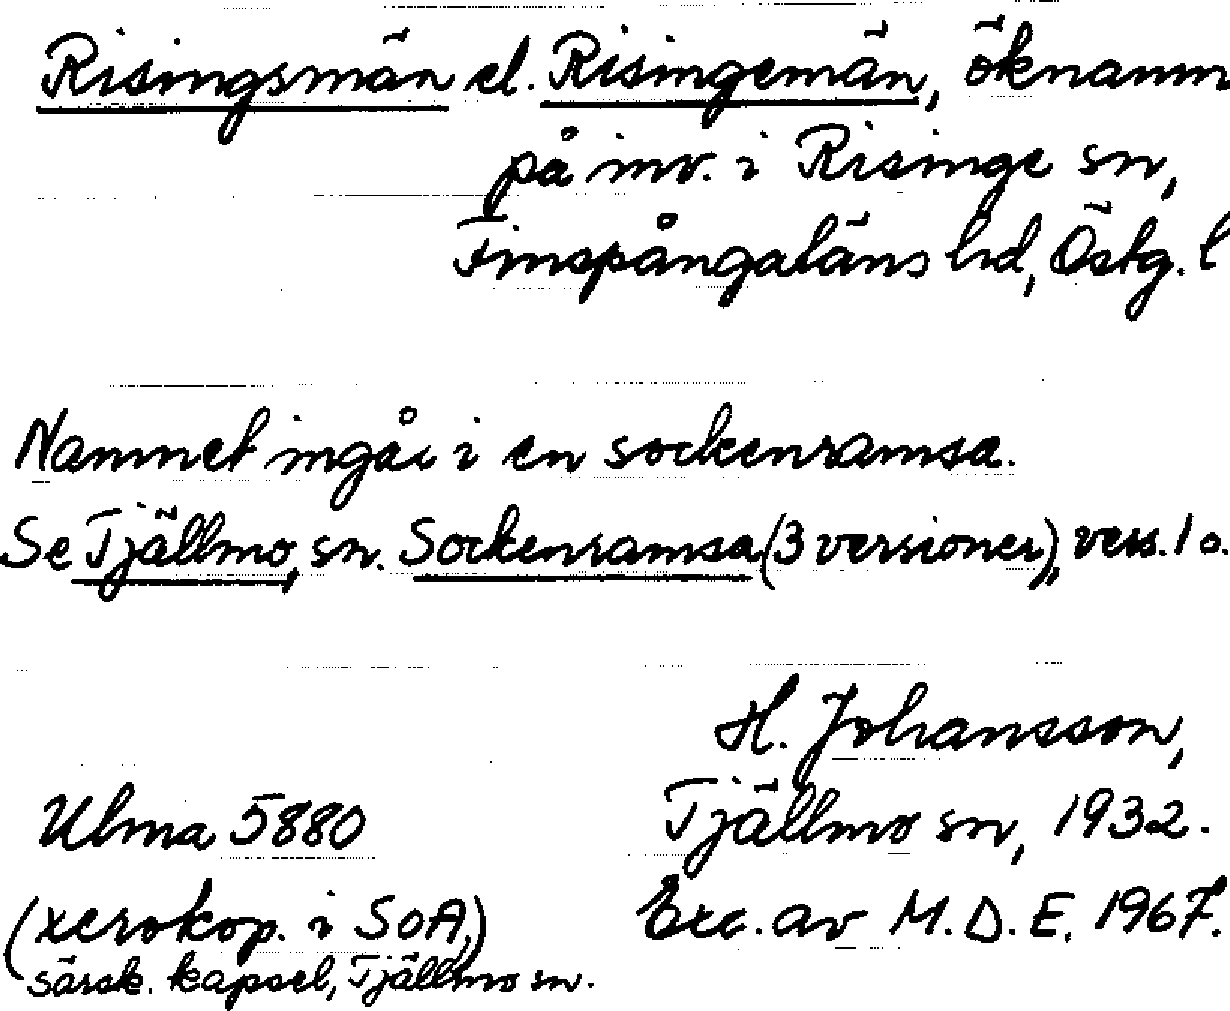 Risingsmän el. Risingemän, öknamn
på inv. i Risinge sn,
Finspångaläns hd, Östg. l
Namnet ingår i en sockenramsa.
Se Tjällmo, sn. Sockenramsa (3 versioner), vers. 1 o.
H. Johansson,
Ulma 5880 Tjällmo sn, 1932.
(xerokop. i SOA, Exc. av M.D.E. 1967.
särsk. kapsel, Tjällmo sn.)